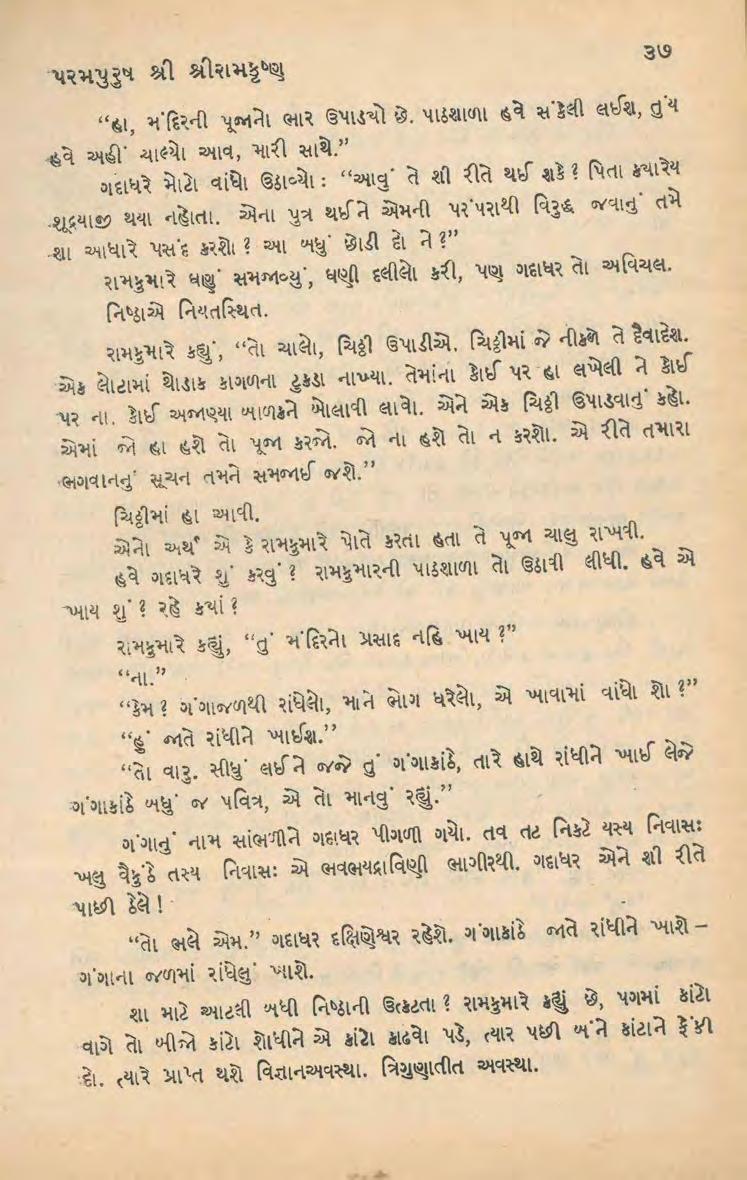 ૩૭
પરમપુરુષ શ્રી શ્રીરામકૃષ્ણ
“હા, મંદિરની પૂજાનો ભાર ઉપાડ્યો છે. પાઠશાળા હવે સંકેલી લઈશ, તુંય
હવે અહીં ચાલ્યો આવ, મારી સાથે.”
ગદાધરે મોટો વાંધો ઉઠાવ્યો : “આવું તે શી રીતે થઈ શકે ? પિતા ક્યારેય
શૂદ્રયાજી થયા નહોતા. એના પુત્ર થઈને એમની પરંપરાથી વિરુદ્ધ જવાનું તમે
શા આધારે પસંદ કરશો ? આ બધું છોડી દો ને ?”
રામકુમારે ઘણું સમજાવ્યું, ઘણી દલીલો કરી, પણ ગદાધર તો અવિચલ.
નિષ્ઠાએ નિયતસ્થિત.
રામકુમારે કહ્યું, “તો ચાલો, ચિઠ્ઠી ઉપાડીએ. ચિઠ્ઠીમાં જે નીકળે તે દૈવાદેશ.
એક લોટામાં થોડાક કાગળના ટુકડા નાખ્યા. તેમાંના કોઈ પર હા લખેલી ને કોઈ
પર ના. કોઈ અજાણ્યા બાળકને બોલાવી લાવો. એને એક ચિઠ્ઠી ઉપાડવાનું કહો.
એમાં જો હા હશે તો પૂજા કરજો. જો ના હશે તો ન કરશો. એ રીતે તમારા
ભગવાનનું સૂચન તમને સમજાઈ જશે.”
ચિઠ્ઠીમાં હા આવી.
એનો અર્થ એ કે રામકુમારે પોતે કરતા હતા તે પૂજા ચાલુ રાખવી.
હવે ગદાધરે શું કરવું ? રામકુમારની પાઠશાળા તો ઉઠાવી લીધી. હવે એ
ખાય શું ? રહે કયાં ?
રામકુમારે કહ્યું, “તું મંદિરનો પ્રસાદ નહિ ખાય ?”
“ના.”
“કેમ ? ગંગાજળથી રાંધેલો, માને ભોગ ધરેલો, એ ખાવામાં વાંધો શો ?”
“હું જાતે રાંધીને ખાઈશ.”
“તો વારુ. સીધું લઈને જજે તું ગંગાકાંઠે, તારે હાથે રાંધીને ખાઈ લેજે
ગંગાકાંઠે બધું જ પવિત્ર, એ તો માનવું રહ્યું.”
ગંગાનું નામ સાંભળીને ગદાધર પીગળી ગયો. તવ તટ નિકટે યસ્ય નિવાસઃ
ખલુ વૈકુંઠે તસ્ય નિવાસઃ એ ભવભયદ્રાવિણી ભાગીરથી. ગદાધર એને શી રીતે
પાછી ઠેલે !
“તો ભલે એમ.” ગદાધર દક્ષિણેશ્વર રહેશે. ગંગાકાંઠે જાતે રાંધીને ખાશે –
ગંગાના જળમાં રાંધેલું ખાશે.
શા માટે આટલી બધી નિષ્ઠાની ઉત્કટતા ? રામકુમારે કહ્યું છે, પગમાં કાંટો
વાગે તો બીજો કાંટો શોધીને એ કાંટો કાઢવો પડે, ત્યાર પછી બંને કાંટાને ફેંકી
દો. ત્યારે પ્રાપ્ત થશે વિજ્ઞાનઅવસ્થા. ત્રિગુણાતીત અવસ્થા.